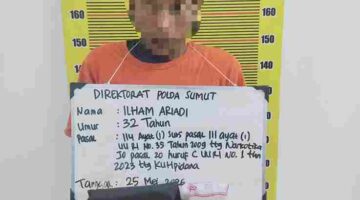 160
DIREKTORAT POLDA SUMUT
Nama : ILHAM ARIADI
Umur : 32 Tahun
Pasal : 114 Ayat (1) Subs pasal 111 ayat (1)
UU RI No. 35 Tahun 2009 ttg Narkotika
Jo pasal 20 huruf C UU RI NO. 1 thn
2023 ttg KUHPidana
25 Mei